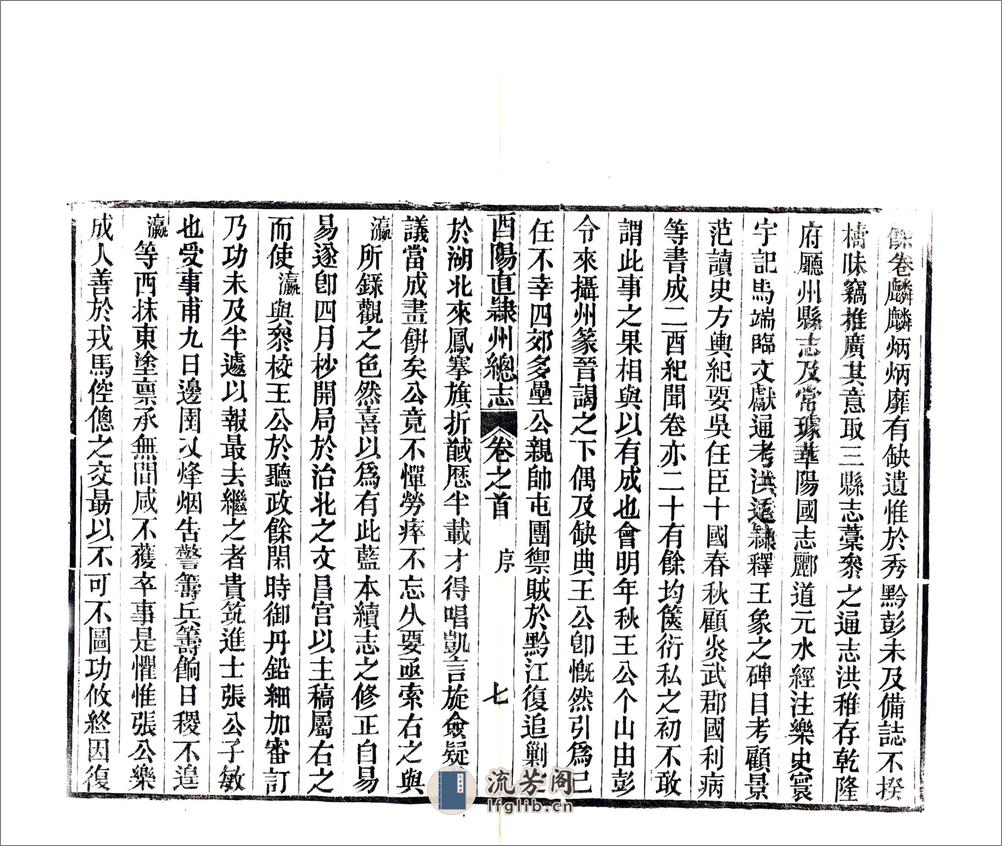 餘卷麟麟炳炳靡有缺遺惟於秀黔彭未及備誌不揆
檮昧竊推廣其意取三縣志藁叅之通志洪稚存乾隆
府廳州縣志及常璩華陽國志酈道元水經注樂史寰
宇記馬端臨文獻通考洪适隸釋王象之碑目考顧景
范讀史方輿紀要吳任臣十國春秋顧炎武郡國利病
等書成二酉紀聞卷亦二十有餘均篋衍私之初不敢
謂此事之果相與以有成也會明年秋王公个山由彭
令來攝州篆晉謁之下偶及缺典王公卽慨然引爲己
任不幸四郊多壘公親帥屯團禦賊於黔江復追剿
酉陽直隸州總志 卷之首 序 七
於湖北來鳳搴旗折馘歷半載才得唱凱言旋僉疑
議當成畫餠矣公竟不憚勞瘁不忘久要亟索右之與
瀛所錄觀之色然喜以爲有此藍本續志之修正自易
易遂卽四月杪開局於治北之文昌宮以主稿屬右之
而使瀛與叅校王公於聽政餘閑時御丹鉛細加審訂
乃功未及半遽以報最去繼之者貴筑進士張公子敏
也受事甫九日邊圉又烽烟告警籌兵籌餉日稷不遑
瀛等西抹東塗禀承無間咸不獲卒事是懼惟張公樂
成人善於戎馬倥傯之交最以不可不圖功攸終因復
流芳阁
lfglib.cn